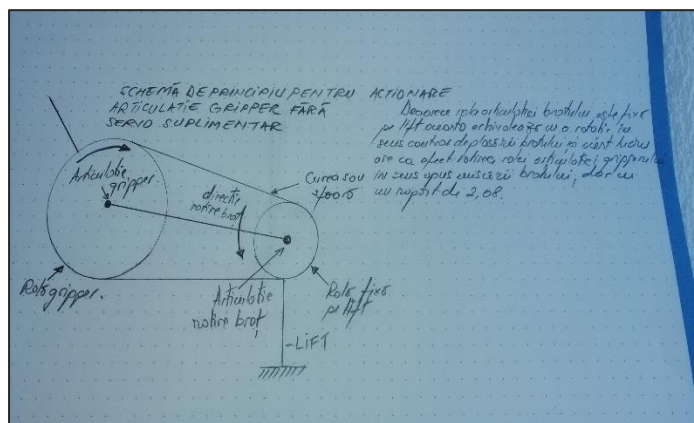 SCHEMĂ DE PRINCIPIU PENTRU ACTIONARE
ARTICULATIE GRIPPER FĂRĂ
SERVO SUPLIMENTAR
Deoarece rola articulatiei bratului este fixa
pe lift aceasta echivalează cu o rotatie în
sens contrar deplasării bratului și acest lucru
are ca efect rotirea rolei articulatiei gripperului
în sens opus miscării bratului, dar cu
un raport de 2,08.
Articulatie
gripper.
Curea sau
directie
rotire braț
Rola gripper.
Articulatie
rotire braț
Rola fixa
pe lift
LIFT